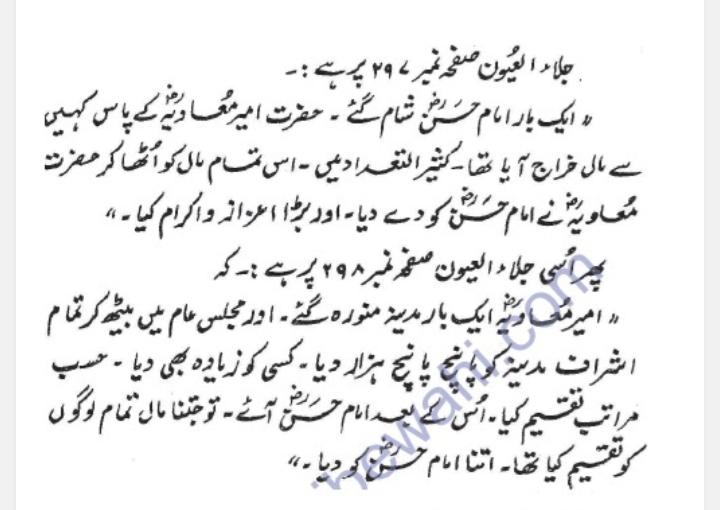 جلاء العیون صفحہ نمبر ۲۹۷ پر ہے :۔
"ایک بار امام حسنؓ شام گئے ۔ حضرت امیر معاویہؓ کے پاس کہیں
سے مال خراج آیا تھا۔ کثیر التعداد میں ۔ اس تمام مال کو اُٹھا کر حضرت
معاویہؓ نے امام حسنؓ کو دے دیا۔ اور بڑا اعزاز و اکرام کیا ۔"
پھر اُسی جلاء العیون صفحہ نمبر ۲۹۸ پر ہے :۔ کہ
"امیر معاویہؓ ایک بار مدینہ منورہ گئے ۔ اور مجلس عام میں بیٹھ کر تمام
اشراف مدینہ کو پانچ پانچ ہزار دیا ۔ کسی کو زیادہ بھی دیا ۔ حسب
مراتب تقسیم کیا ۔ اُس کے بعد امام حسنؓ آئے ۔ تو جتنا مال تمام لوگوں
کو تقسیم کیا تھا۔ اتنا امام حسنؓ کو دیا ۔"
newani.com